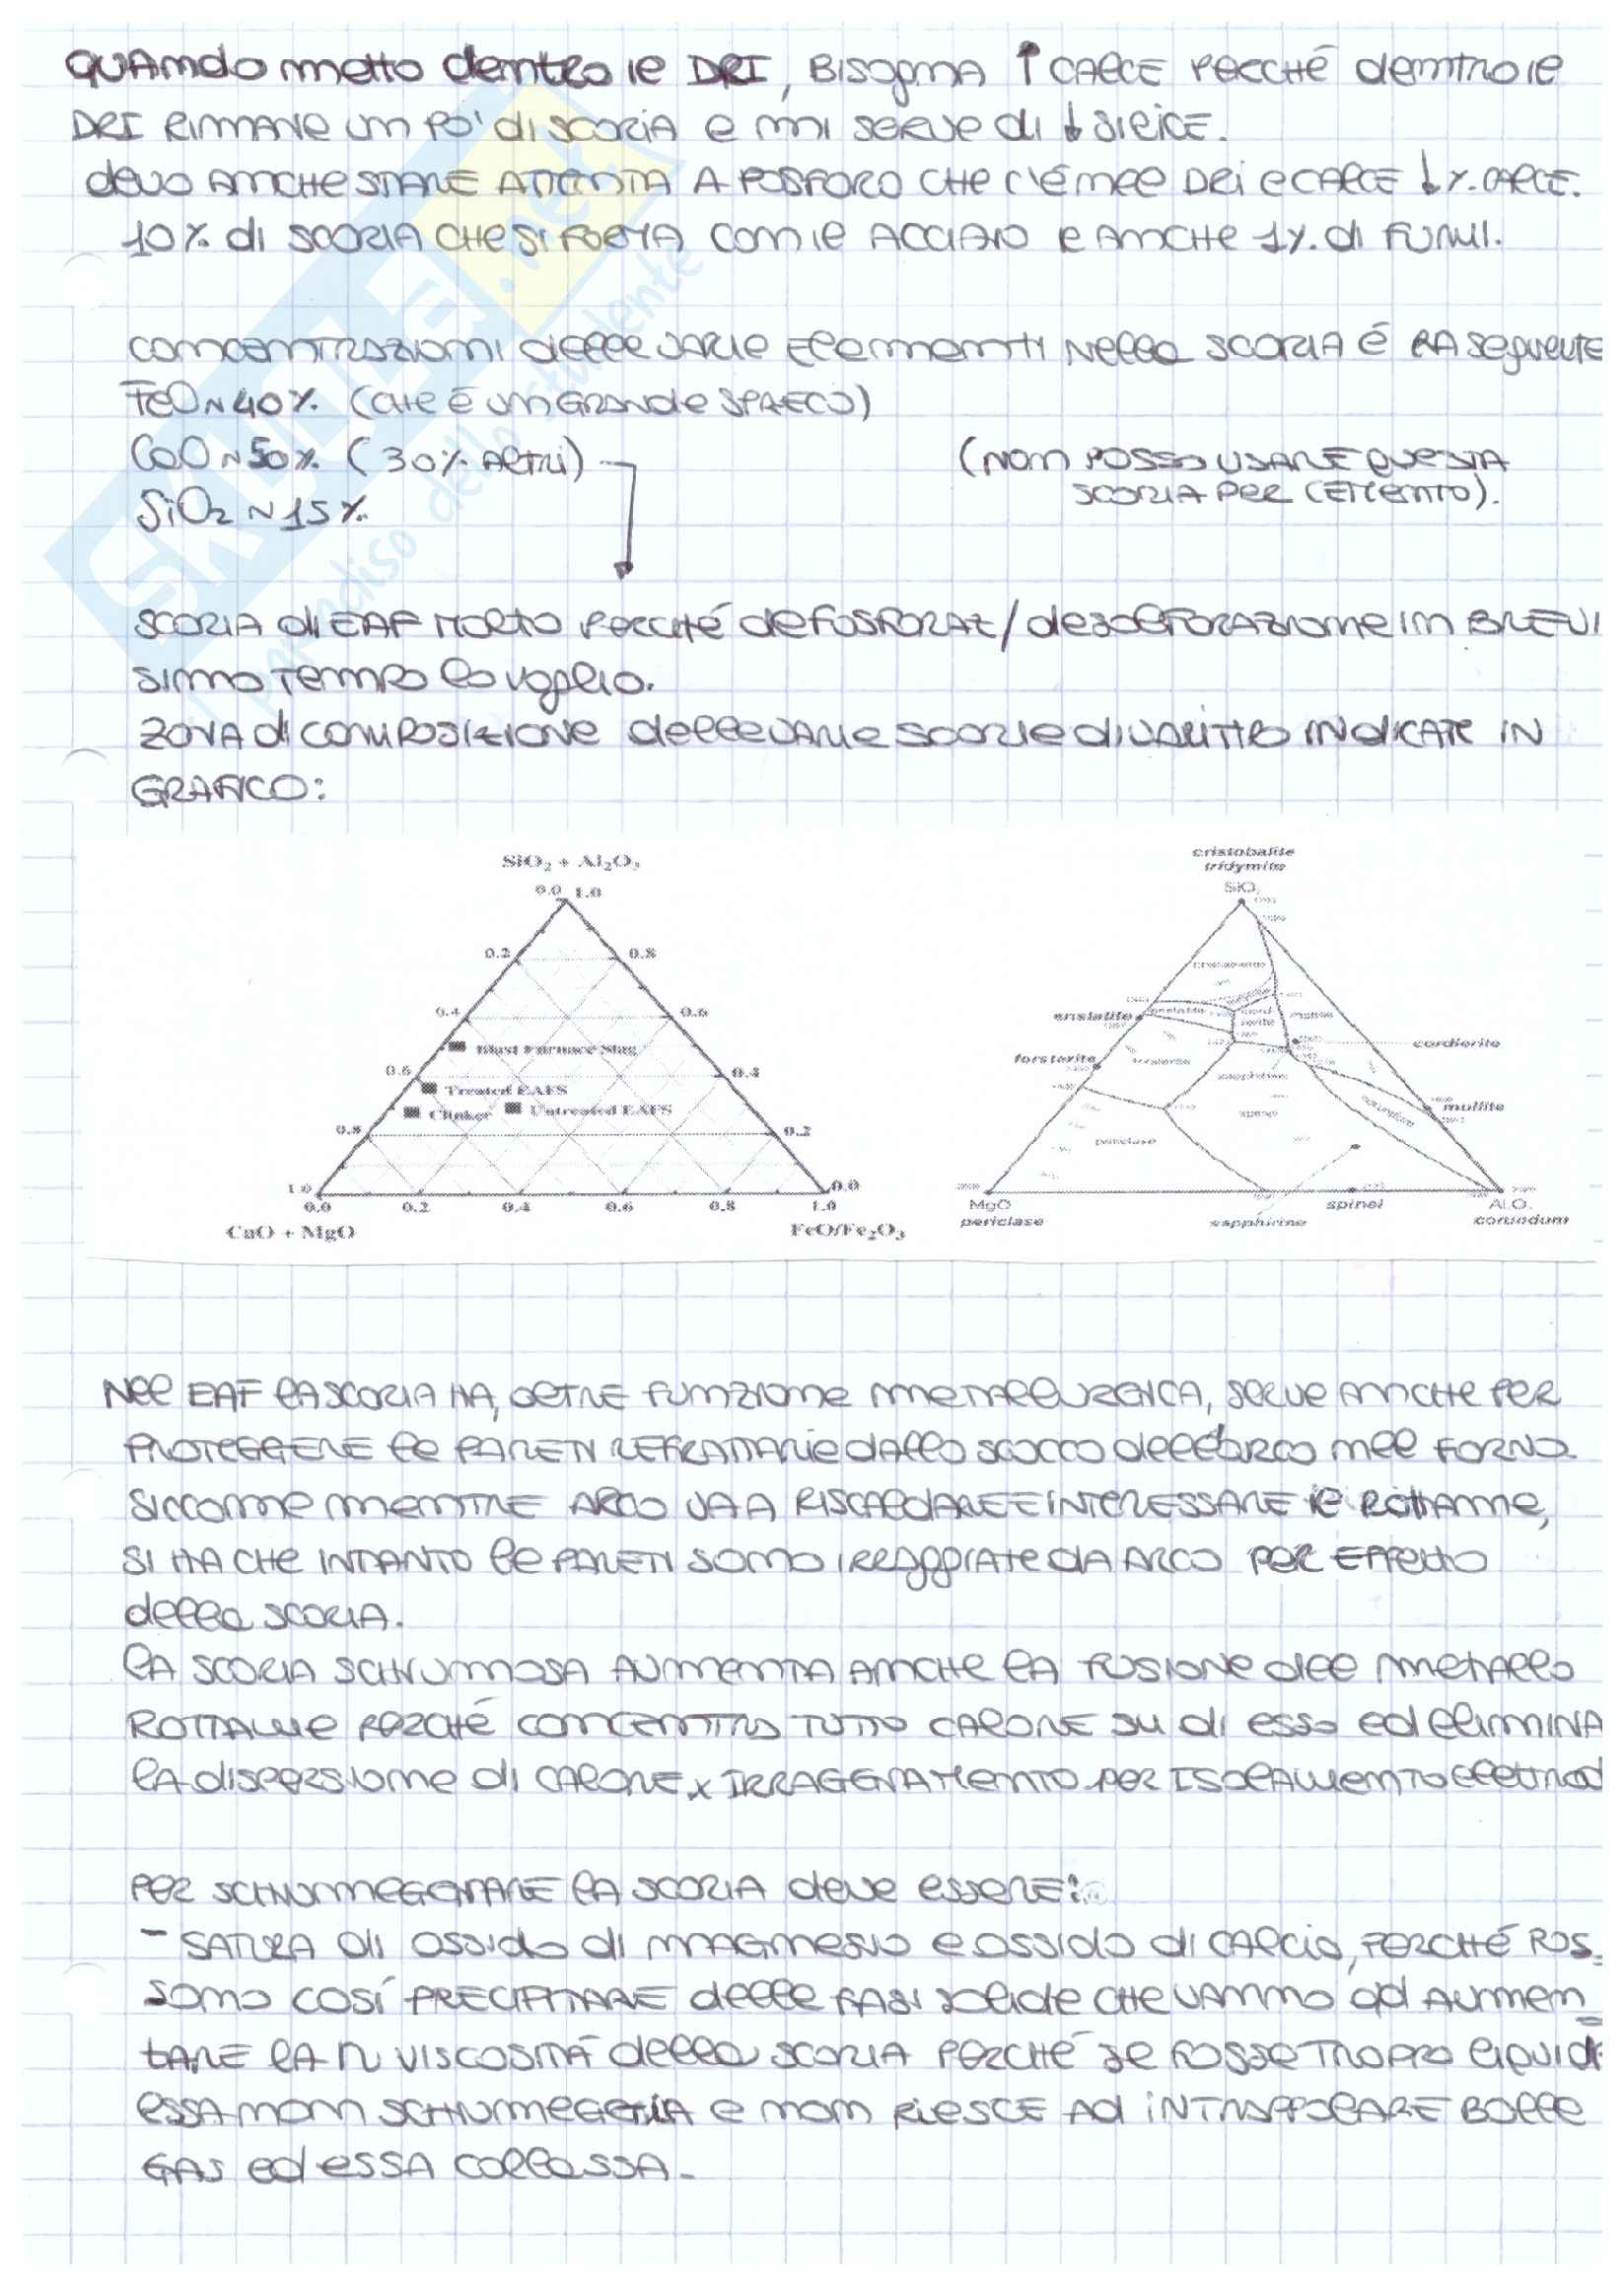 QUANDO METTO DENTRO IL DRI, BISOGNA ↑ CALCE PERCHÉ DENTRO IL
DRI RIMANE UN PO' DI SCORIA E MI SERVE DI ↓ SILICE.
DEVO ANCHE STARE ATTENTA A FOSFORO CHE C'É NEL DRI E CALCE ↓ %. CALCE.
10% DI SCORIA CHE SI FORMA CON IL ACCIAIO E ANCHE 1% DI FUMI.
CONCENTRAZIONI DELLE VARIE ELEMENTI NELLA SCORIA É LA SEGUENTE
FeO ~ 40% (CHE É UN GRANDE SPRECO)
CaO ~ 50% (30% ALTRI)
(NON POSSO USARE QUESTA
SCORIA PER CEMENTO).
SiO2 ~ 15%
SCORIA DI EAF MOLTO PERCHÉ DEFOSFORAZ/DESOLFORAZIONE IN BREVI
SIMO TEMPO LO VOGLIO.
ZONA DI COMPOSIZIONE DELLE VARIE SCORIE DI INDICATE IN
GRAFICO:
SiO2 + Al2O3
0.0 1.0
0.2 0.8
0.4 0.6
Blast Furnace Slag
0.6 0.4
Treated EAFS
Clinker Untreated EAFS
0.8 0.2
1.0 0.0
0.0 0.2 0.4 0.6 0.8 1.0
CaO + MgO FeO/Fe2O3
cristobalite
tridymite
SiO2
cristobalite
enstatite
cordierite
forsterite
sapphirine
mullite
spinel
periclase
MgO spinel Al2O3
periclase sapphirine corundum
NEL EAF LA SCORIA HA, OLTRE FUNZIONE METALLURGICA, SERVE ANCHE PER
PROTEGGERE LE PARETI REFRATTARIE DALLO SCOCCO DELL'ARCO NEL FORNO
SICCOME MENTRE ARCO VA A RISCALDARE E INTERESSARE IL ROTTAME,
SI HA CHE INTANTO LE PARETI SONO IRRAGGIATE DA ARCO PER EFFETTO
DELLA SCORIA.
LA SCORIA SCHIUMOSA AUMENTA ANCHE LA FUSIONE DEL METALLO
ROTTAME PERCHÉ CONCENTRA TUTTO CALORE SU DI ESSO ED ELIMINA
LA DISPERSIONE DI CALORE x IRRAGGIAMENTO PER ISOLAMENTO ELETTROD
PER SCHIUMEGGIARE LA SCORIA DEVE ESSERE:
- SATURA DI OSSIDO DI MAGNESIO E OSSIDO DI CALCIO, PERCHÉ POS_
SONO COSÍ PRECIPITARE DELLE FASI SOLIDE CHE VANNO AD AUMEN_
TARE LA η VISCOSITÀ DELLA SCORIA PERCHÉ SE FOSSE TROPPO LIQUIDA
ESSA NON SCHIUMEGGIA E NON RIESCE AD INTRAPPOLARE BOLLE
GAS ED ESSA COLLASSA.
SKUOLA.net
il paradiso dello studente